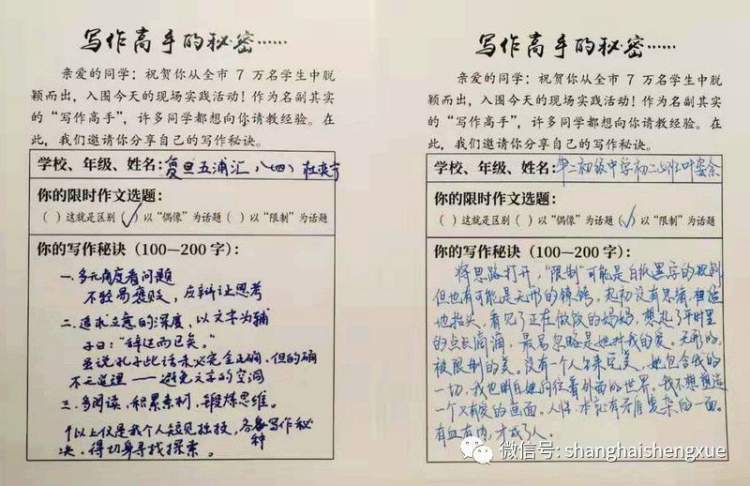 写作高手的秘密……
亲爱的同学：祝贺你从全市 7 万名学生中脱
颖而出，入围今天的现场实践活动！作为名副其实
的“写作高手”，许多同学都想向你请教经验。在
此，我们邀请你分享自己的写作秘诀。
学校、年级、姓名：复旦五浦汇 八(四)
你的限时作文选题：
( ) 这就是区别 (✓) 以“偶像”为话题 ( ) 以“限制”为话题
你的写作秘诀（100—200 字）：
一.多元角度看问题
不轻易褒贬，应辩证思考
二.追求立意的深度，以文字为辅
子曰：“辞达而已矣。”
虽说孔子此话未必完全正确，但的确
不无道理——避免文章的空洞
三.多阅读，积累素材，锻炼思维。
以上仅是我个人短见拙技，各种写作秘
决，得切身寻找探索。
写作高手的秘密……
亲爱的同学：祝贺你从全市 7 万名学生中脱
颖而出，入围今天的现场实践活动！作为名副其实
的“写作高手”，许多同学都想向你请教经验。在
此，我们邀请你分享自己的写作秘诀。
学校、年级、姓名：二初级中学初二
你的限时作文选题：
( ) 这就是区别 ( ) 以“偶像”为话题 (✓) 以“限制”为话题
你的写作秘诀（100—200 字）：
将思路打开，“限制”可能是白纸黑字的规则
但也有可能是无形的，起初没有思绪
地抬头，看见了正在做饭的妈妈，想起了平时里
的点点滴滴，最易忽略是她对我的爱，无形的，
被限制的美，没有一个人生来完美，她包含我的
一切，我也明白她向往着外面的世界，我不想塑造
一个又有爱的画面，人性本就有着复杂的一面。
有血有肉，才成了人。
微信号: shanghaishengxue